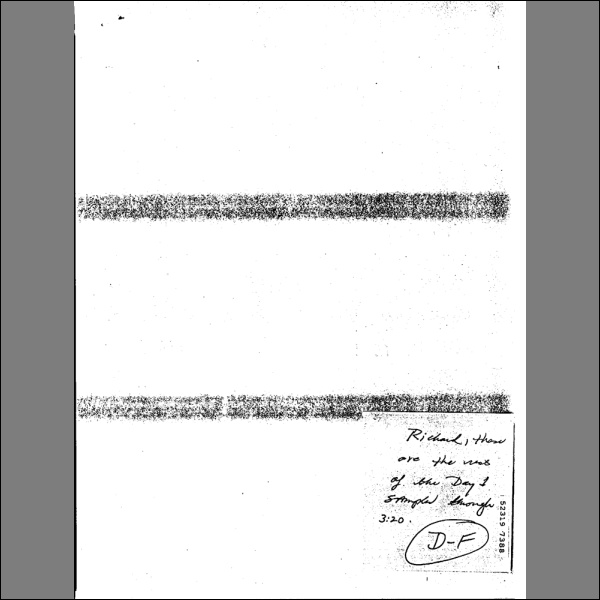 Richard, these
are the rest
of the Day 1
samples through
3:20.
D-F
52319 7388